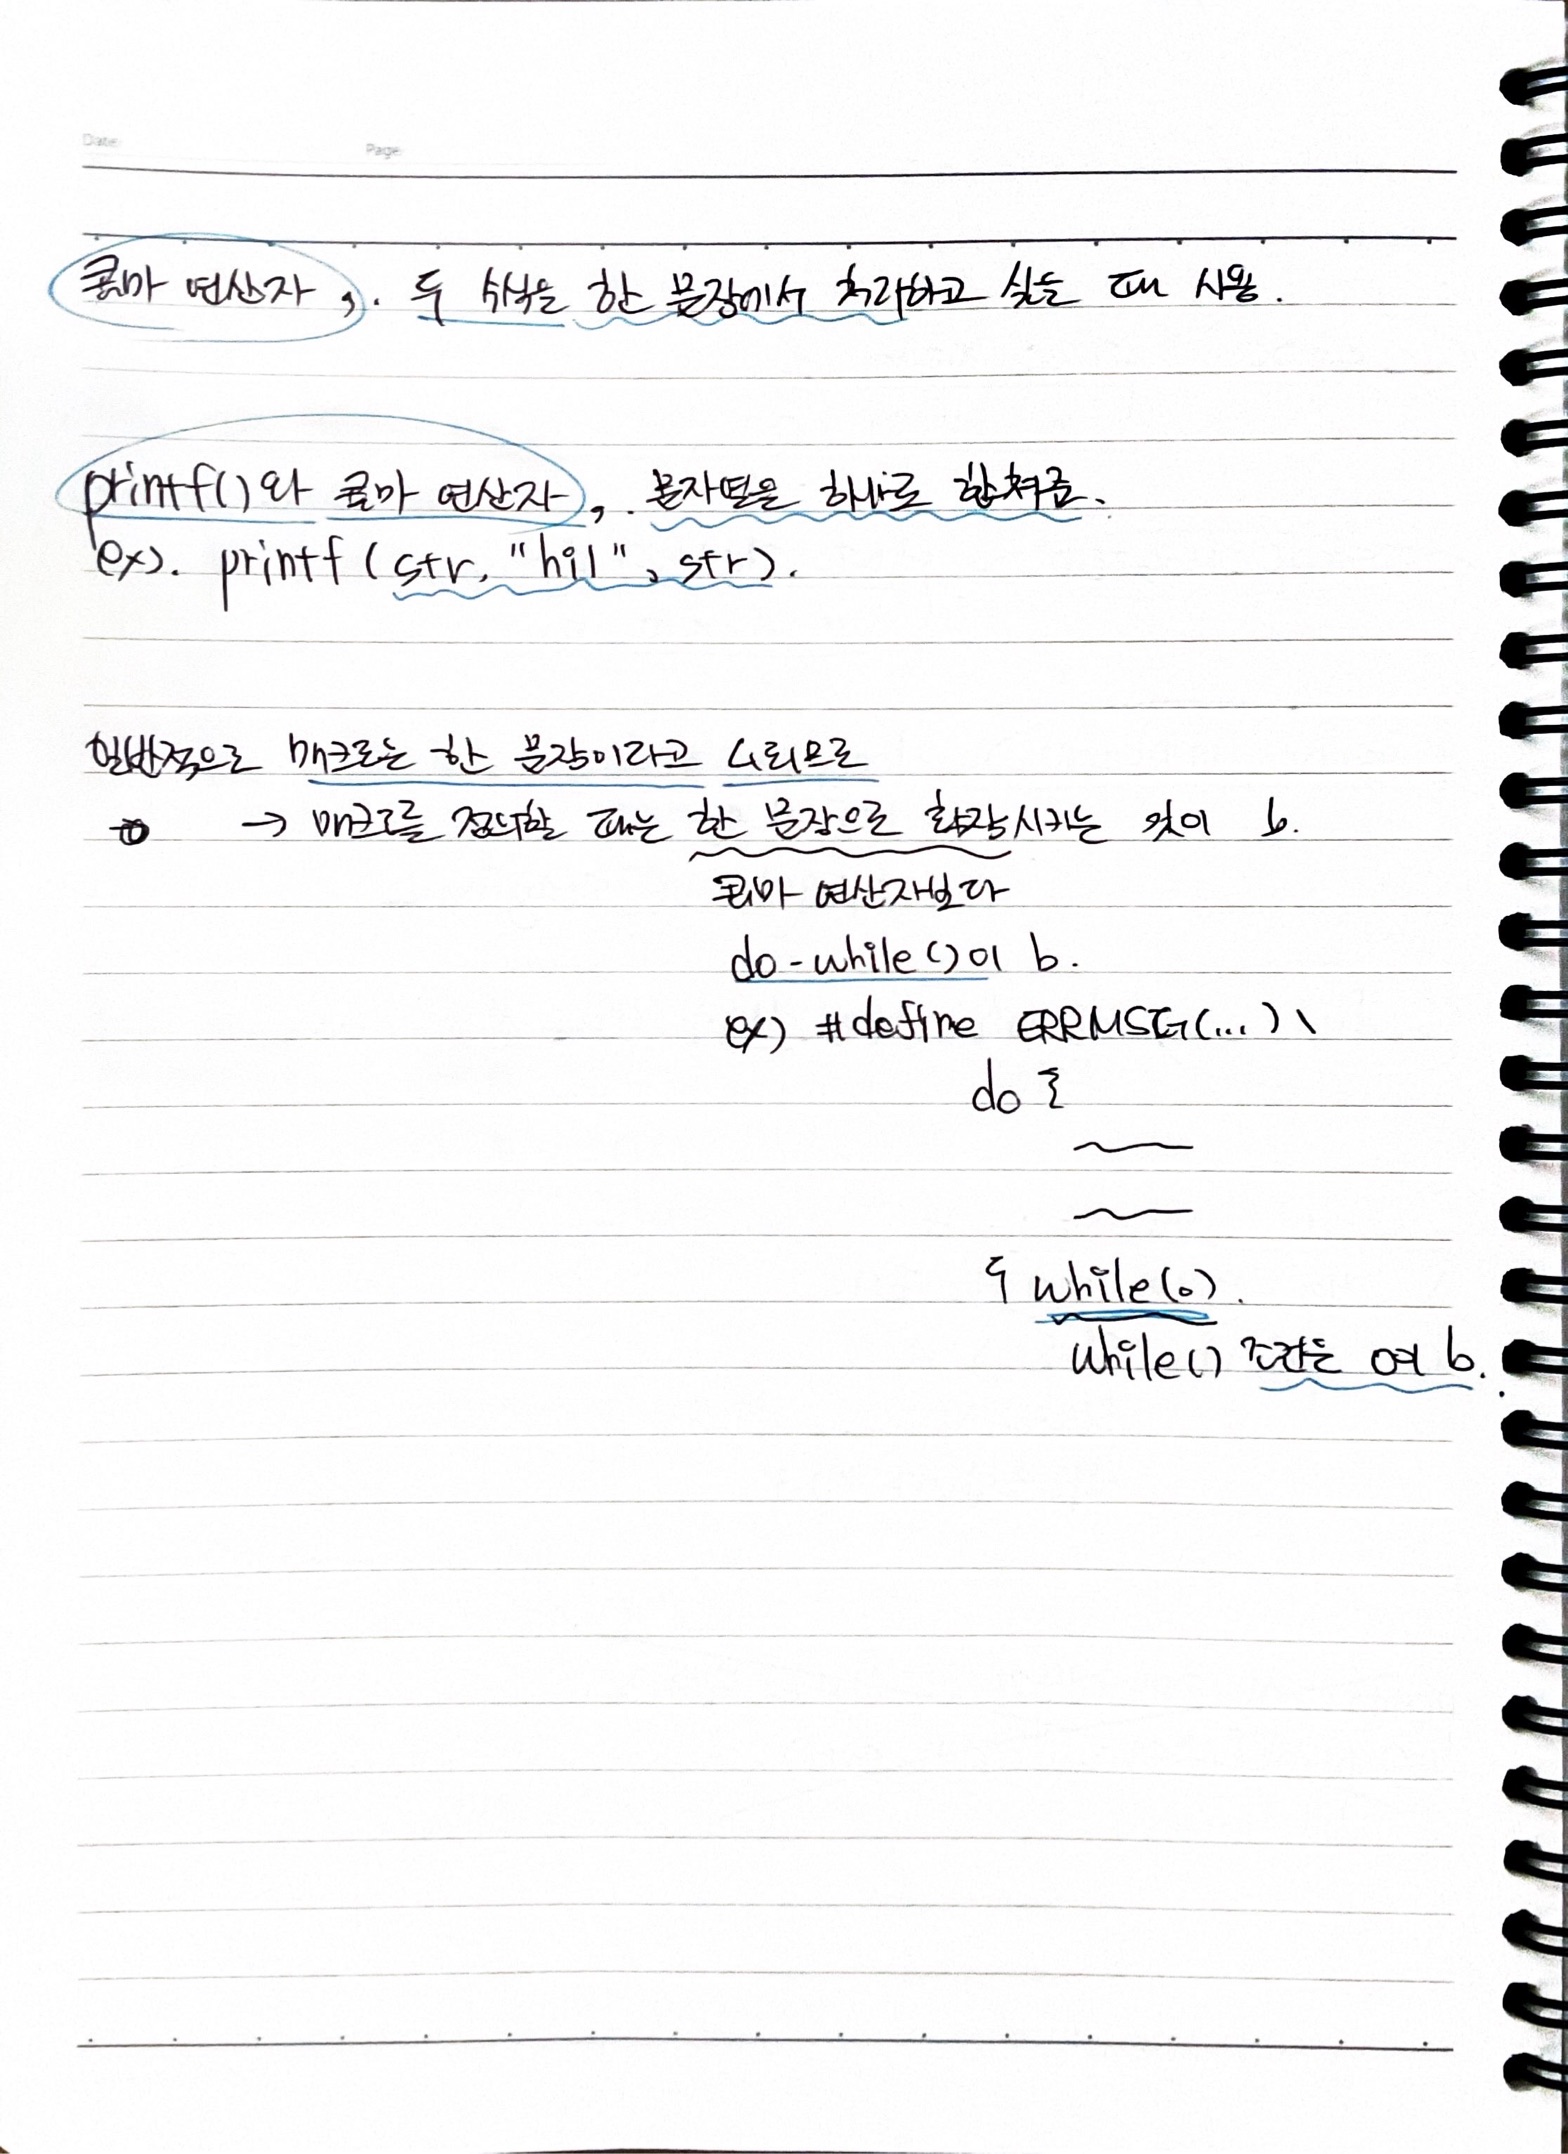 Date Page
콤마 연산자 , . 두 수식을 한 문장에서 처리하고 싶을 때 사용.
printf()와 콤마 연산자 , . 문자열을 하나로 합쳐줌.
ex). printf (str, "hi!", str).
일반적으로 매크로는 한 문장이라고 느끼므로
→ 매크로를 정의할 때는 한 문장으로 확장시키는 것이 b.
콤마 연산자보다
do-while()이 b.
ex) #define ERRMSG(...) \
do {
} while(0).
while() 조건은 0여 b.